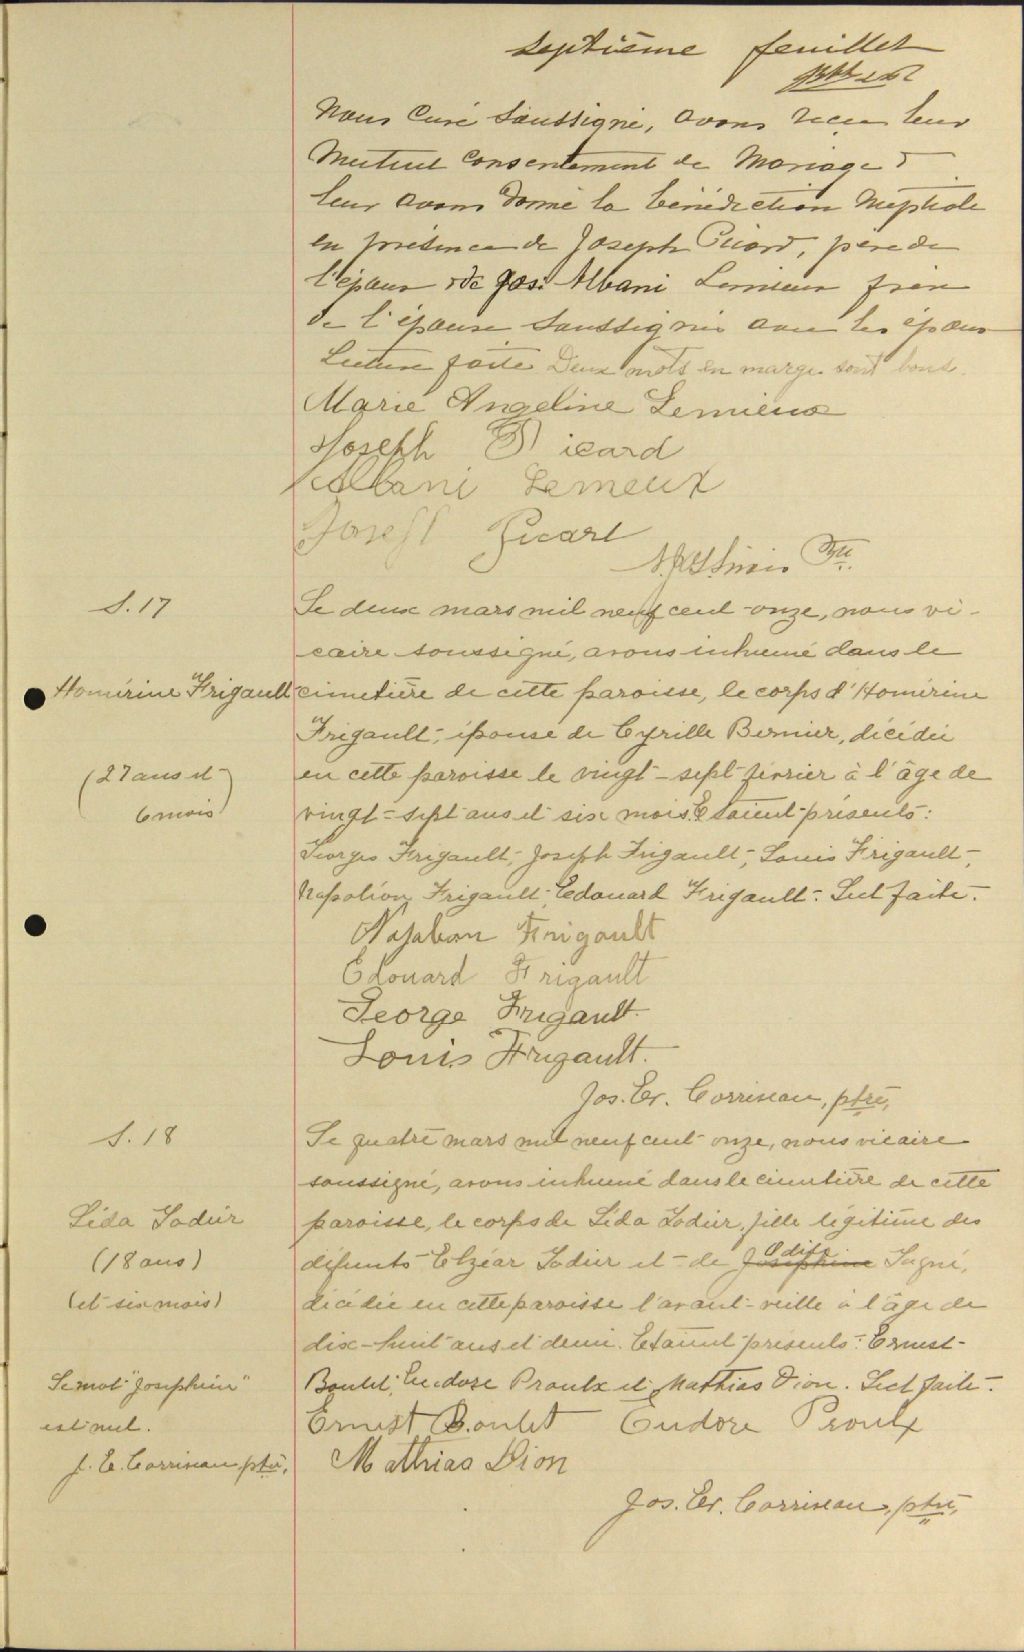 septième feuillet
Nous Curé Soussigné, avons reçu leur
Mutuel Consentement de Mariage &
leur avons donné la bénédiction Nuptiale
en présence de Joseph Picard, père de
l'époux & de Jos. Albani Lemieux frère
de l'épouse Soussignés avec les époux
Lecture faite Deux mots en marge sont bons.
Marie Angeline Lemieux
Joseph Picard
Albani Lemeux
Josefl Picarl
Ptre.
S. 17
Homérine Frigault
(27 ans et
6 mois)
Le deux mars mil neuf cent-onze, nous vi-
caire soussigné, avons inhumé dans le
cimetière de cette paroisse, le corps d'Homérine
Frigault, épouse de Cyrille Bernier, décédée
en cette paroisse le vingt-sept février à l'âge de
vingt-sept ans et six mois. Etaient présents:
Georges Frigault, Joseph Frigault, Louis Frigault,
Napoléon Frigault, Edouard Frigault. Lect faite.
Napoleon Frigault
Edouard Frigault
George Frigault.
Louis Frigault.
Jos. Er. Corriveau, ptre,
S. 18
Léda Jodeir
(18 ans)
(et six mois)
Le mot "Josephine"
est nul.
J. E. Corriveau ptre,
Le quatre mars mil neuf cent onze, nous vicaire
soussigné, avons inhumé dans le cimetière de cette
paroisse, le corps de Léda Jodeir, fille légitime des
défunts Elzéar Jodeir et de Josephine Odile Gagné,
décédée en cette paroisse l'avant-veille à l'âge de
dix-huit ans et demi. Etaient présents: Ernest
Boulet, Eudore Proulx et Mathias Dion. Lect faite.
Ernest Boulet Eudore Proulx
Mathias Dion
Jos. Er. Corriveau, ptre,